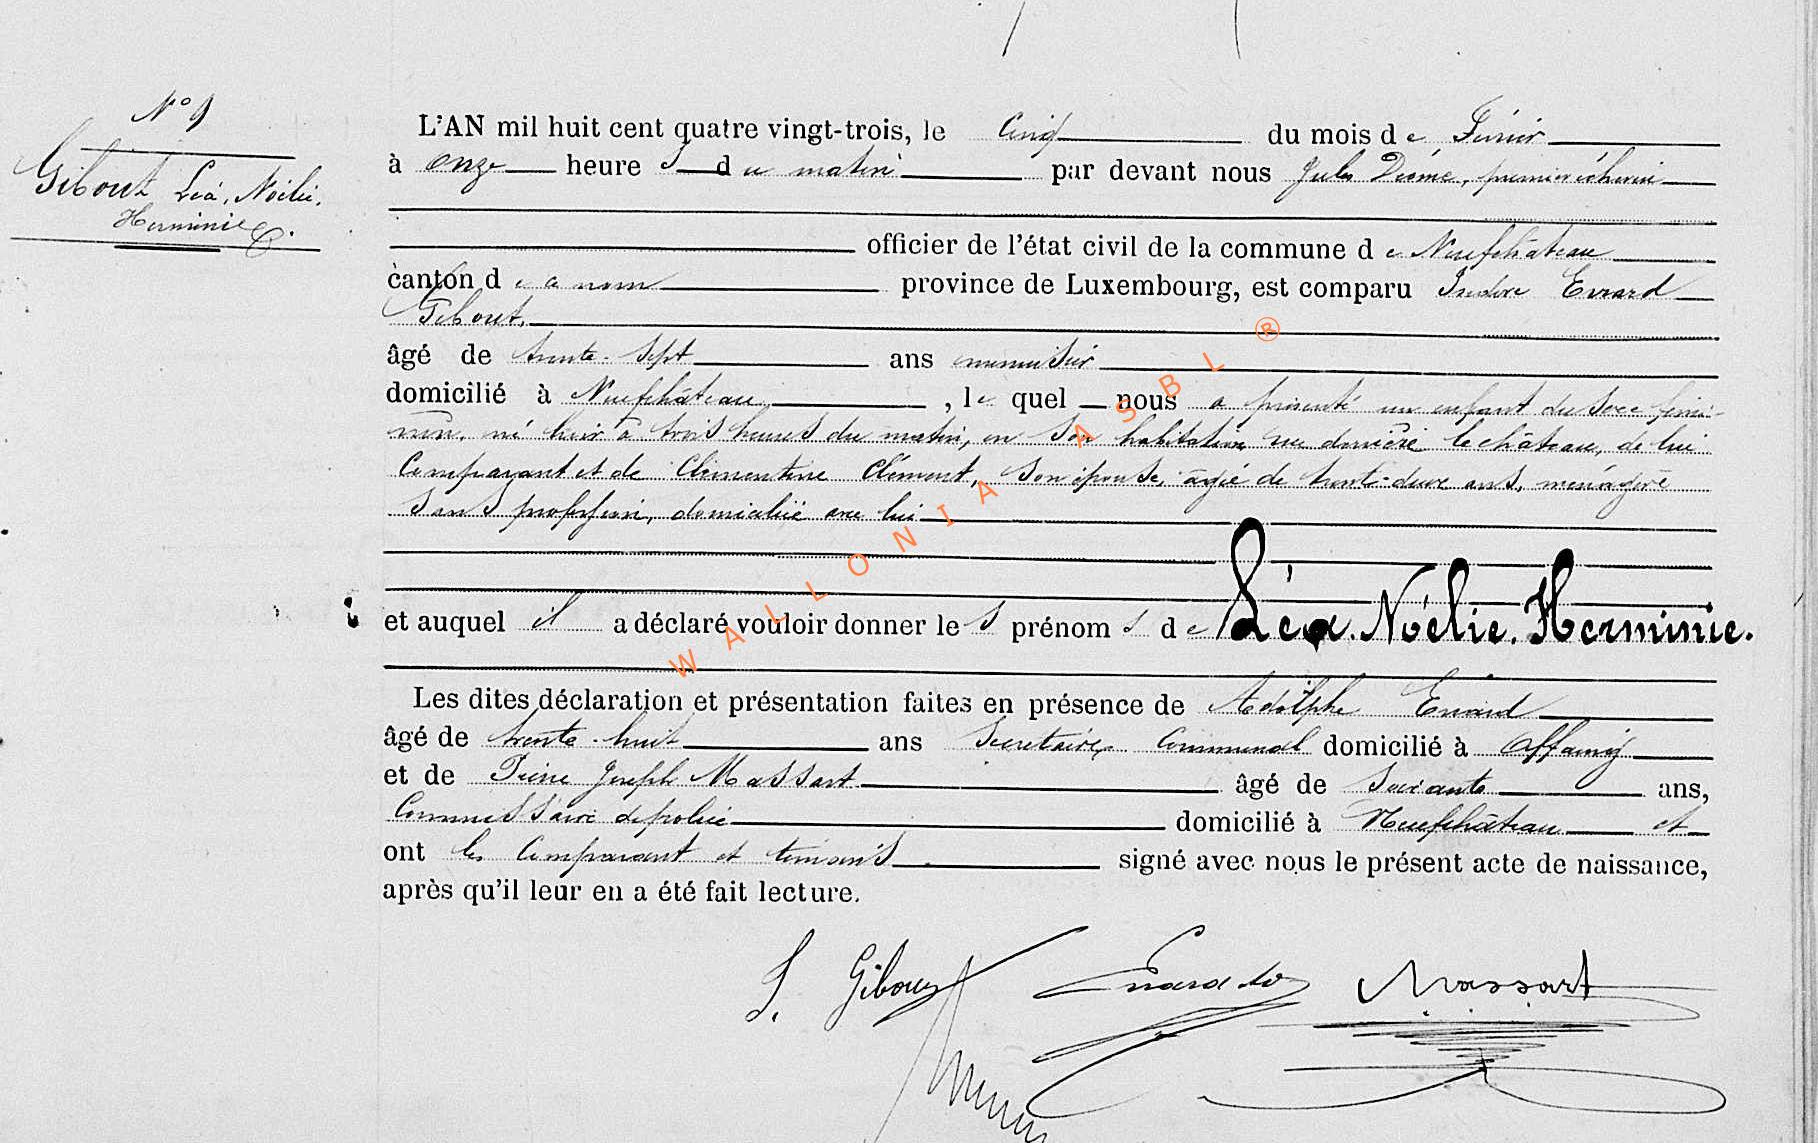 N° 9
Gibout Léa, Noélie,
Herminie
L'AN mil huit cent quatre vingt-trois, le cinq du mois de Février
à onze heures du matin par devant nous Jules Déome, premier échevin
officier de l'état civil de la commune de Neufchâteau
canton de ce nom province de Luxembourg, est comparu Isidore Evrard
Gibout,
âgé de trente-sept ans menuisier
domicilié à Neufchâteau, lequel nous a présenté un enfant du sexe fémi-
nin, né hier à trois heures du matin, en son habitation rue derrière le château, de lui
comparant et de Clémentine Clément, son épouse, âgée de trente-deux ans, ménagère
sans profession, domiciliée avec lui
et auquel il a déclaré vouloir donner les prénoms de Léa. Noélie. Herminie.
Les dites déclaration et présentation faites en présence de Adolphe Evrard
âgé de trente-huit ans Secrétaire Communal domicilié à Offaing
et de Pierre Joseph Massart âgé de soixante ans,
Commissaire de police domicilié à Neufchâteau et
ont les comparant et témoins signé avec nous le présent acte de naissance,
après qu'il leur en a été fait lecture.
WALLONIA ASBL ®
I. Gibout Evrard Massart